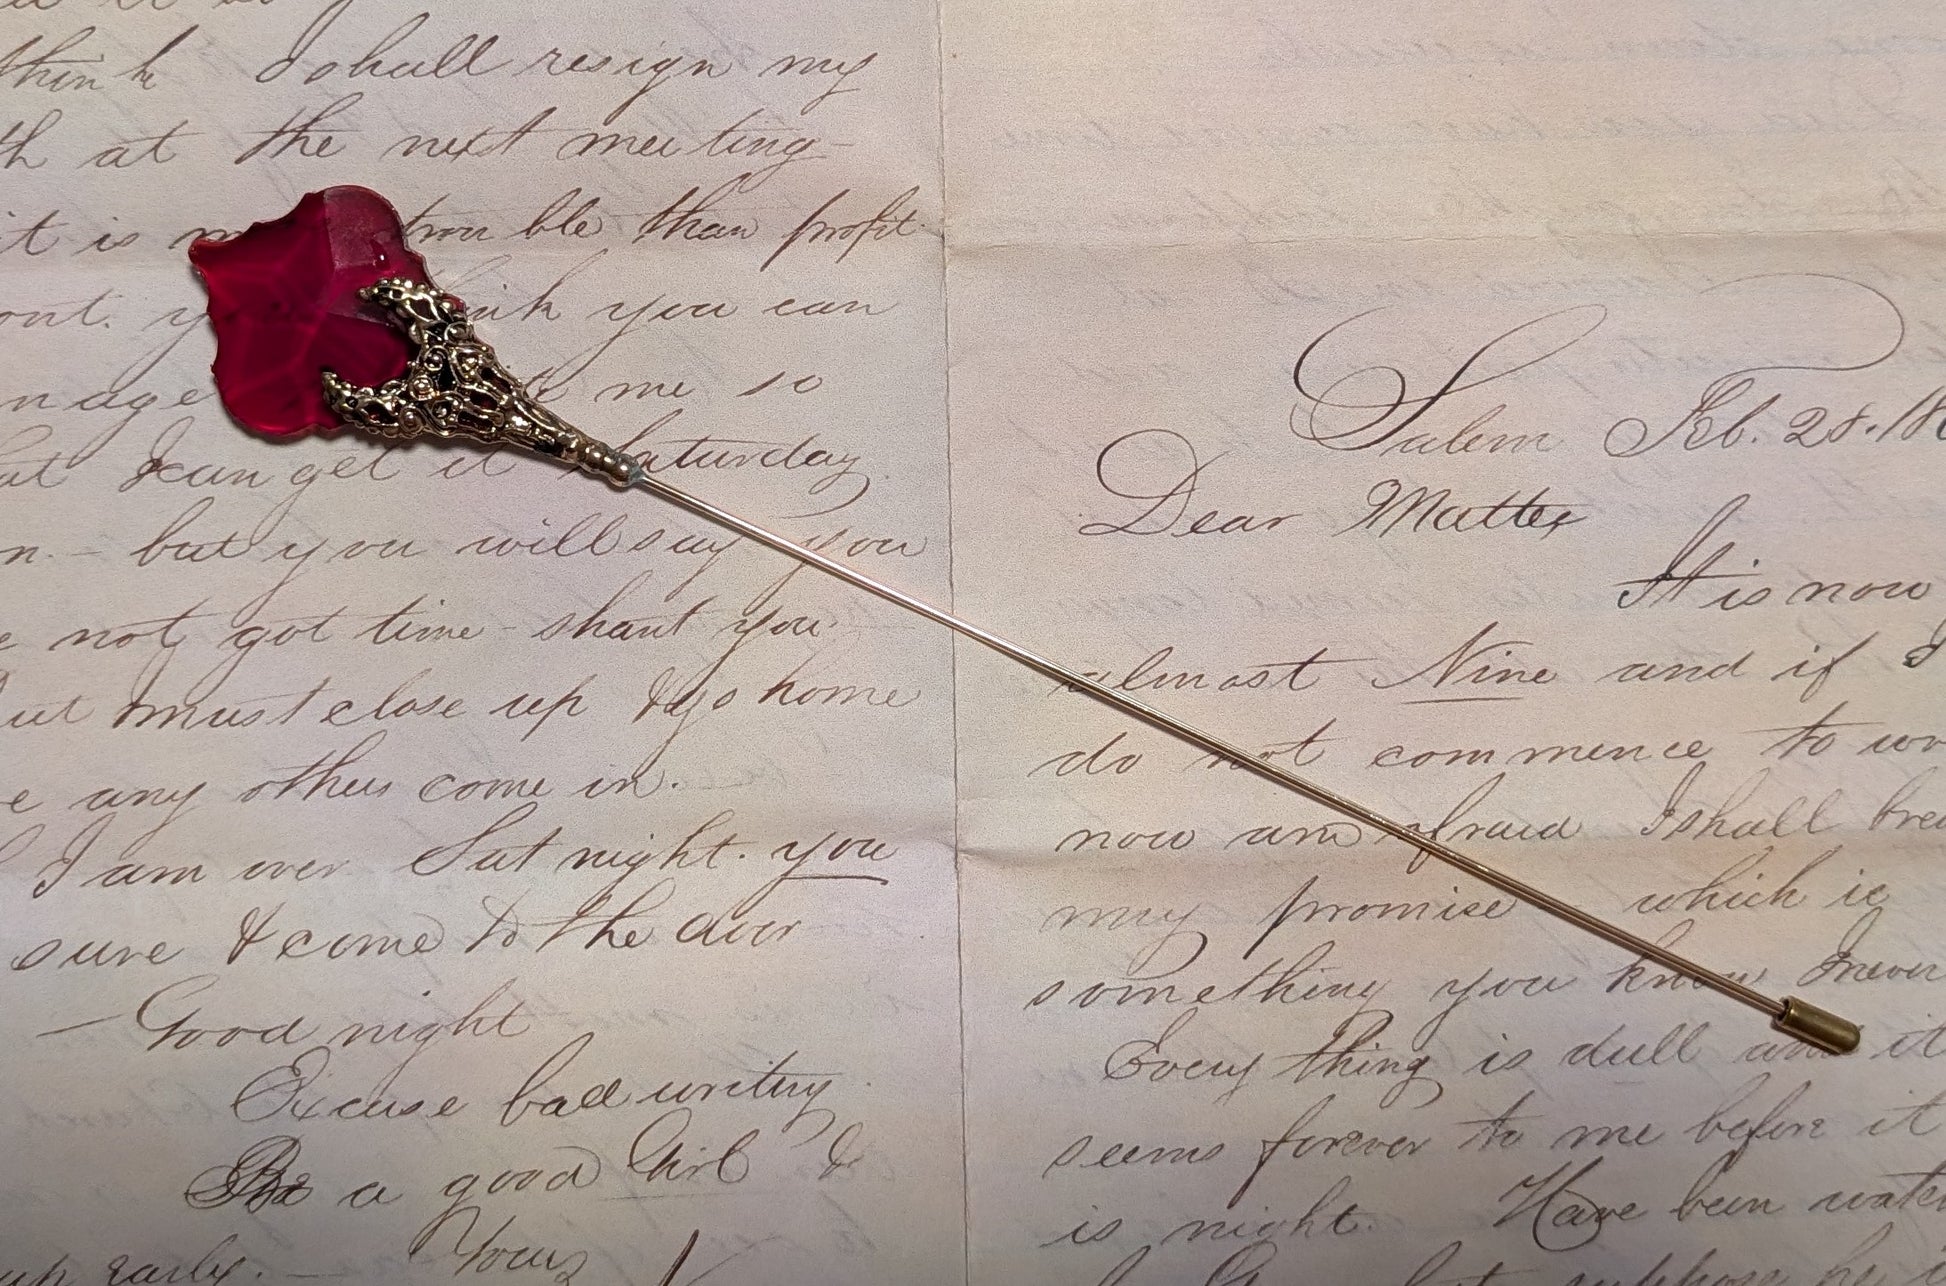 think I shall resign my
at the next meeting
it is trouble than profit
you can
me so
I can get it Saturday
but you will say you
not got time - shant you
must close up & go home
any others come in.
I am over Sat night. you
sure & come to the door
- Good night
Excuse bad writing
Be a good Girl &
up early. - Yours
Salem Feb. 28. 18
Dear Matter
It is now
almost Nine and if I
do not commence to
now am afraid I shall
my promise which is
something you know I never
Every thing is dull and it
seems forever to me before it
is night. Have been